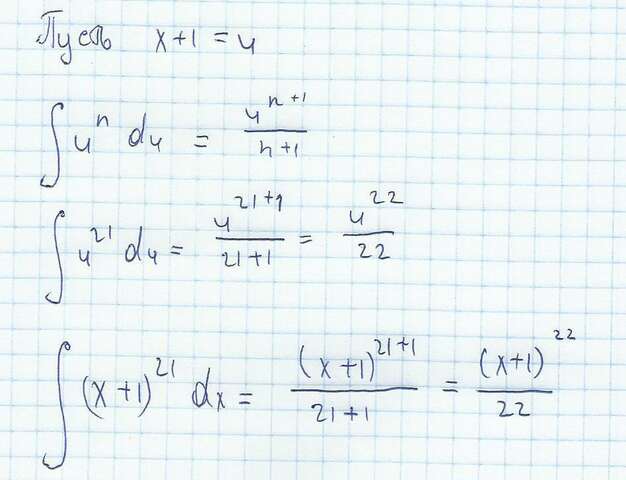 Пусть x+1 = u
∫ u^n du = u^(n+1) / (n+1)
∫ u^21 du = u^(21+1) / (21+1) = u^22 / 22
∫ (x+1)^21 dx = (x+1)^(21+1) / (21+1) = (x+1)^22 / 22